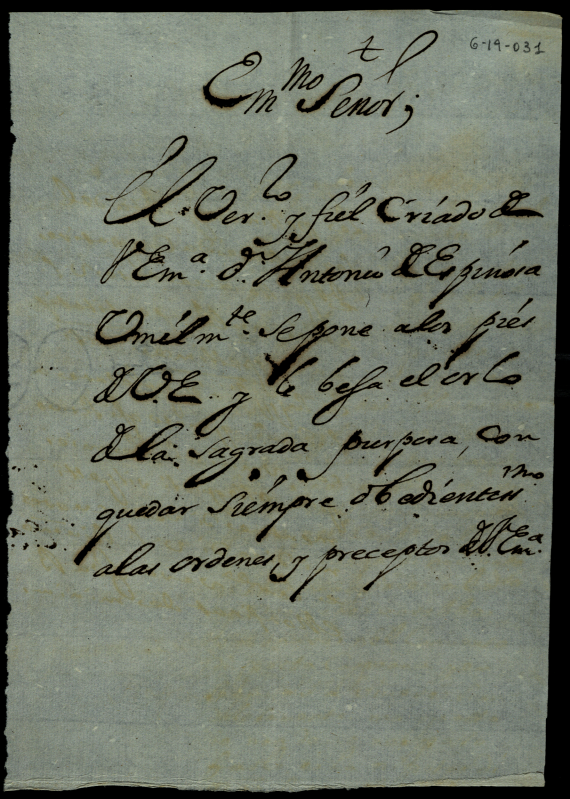 6-19-031
Emmo Señor;
El Ver.lo y fiel Criado de
V Em.a d.n Antonio de Espinosa
Umilm.te se pone a los pies
de V.E. y le besa el orlo
de la sagrada purpera, con
quedar siempre obedientessmo
a las ordenes, y preceptos de V. Em.a